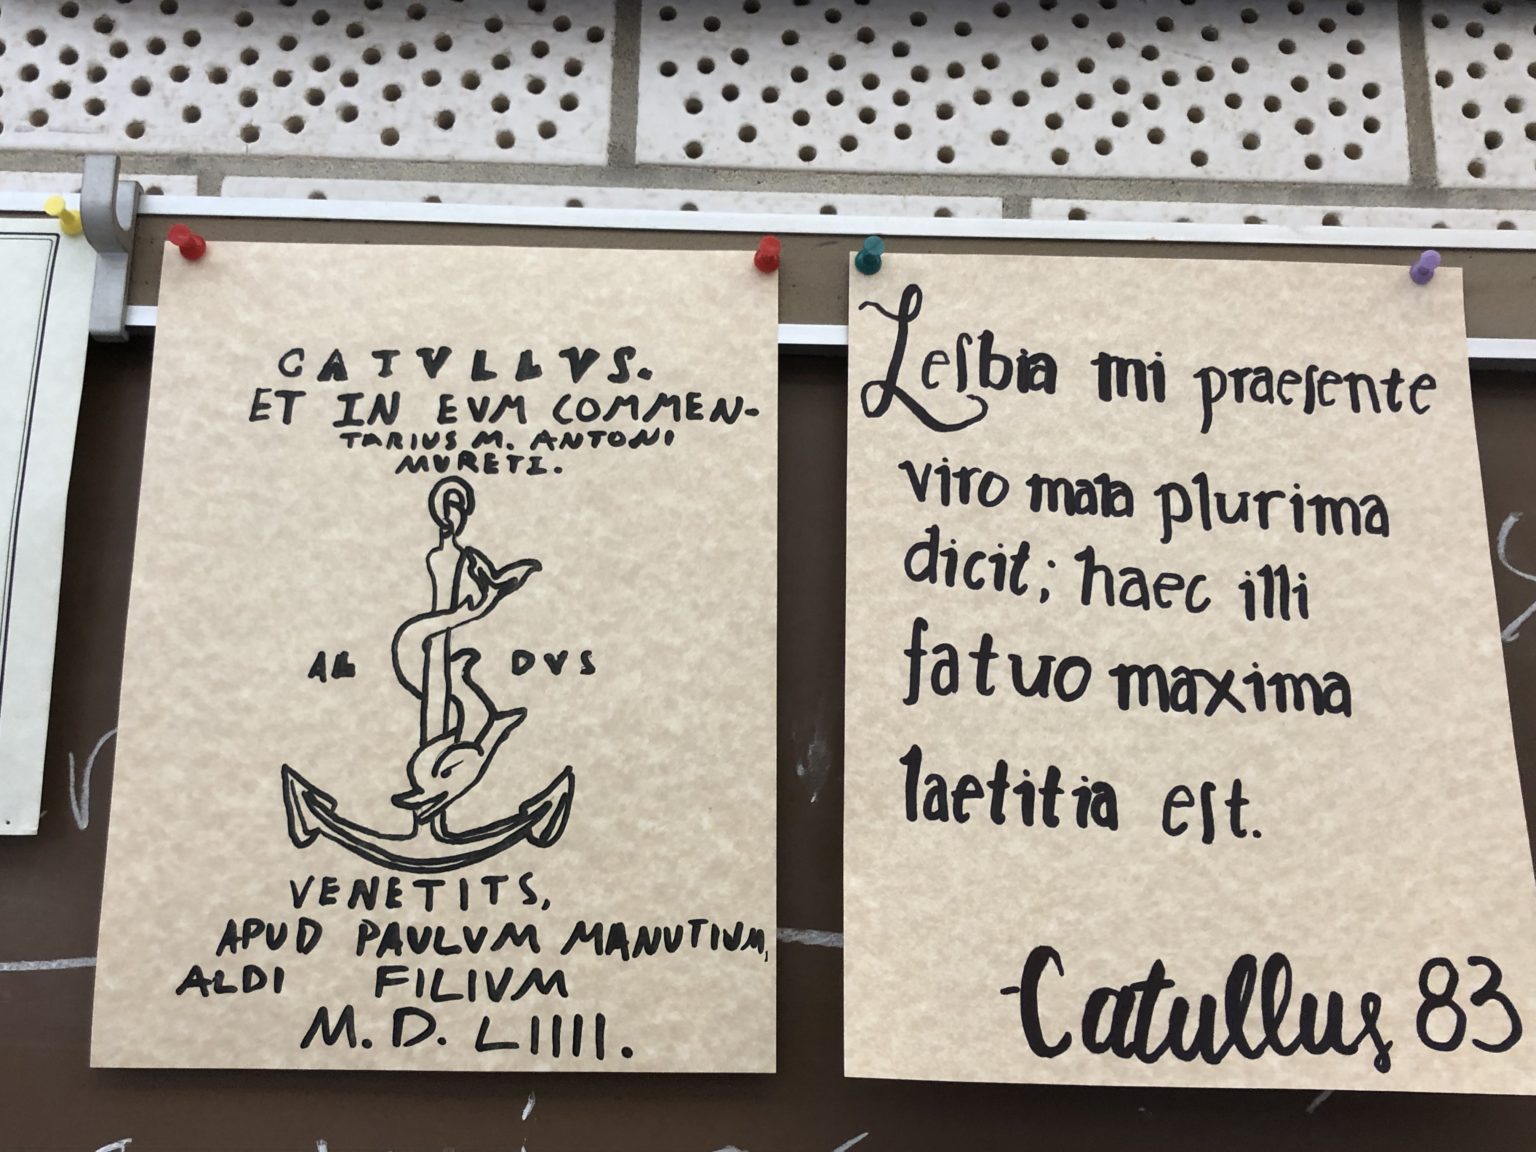 CATVLLVS.
ET IN EVM COMMEN-
TARIUS M. ANTONI
MVRETI.
AL DVS
VENETITS,
APUD PAULVM MANUTIUM,
ALDI FILIVM
M. D. LIIII.
Leſbia mi praeſente
viro mala plurima
dicit; haec illi
fatuo maxima
laetitia eſt.
-Catullus 83